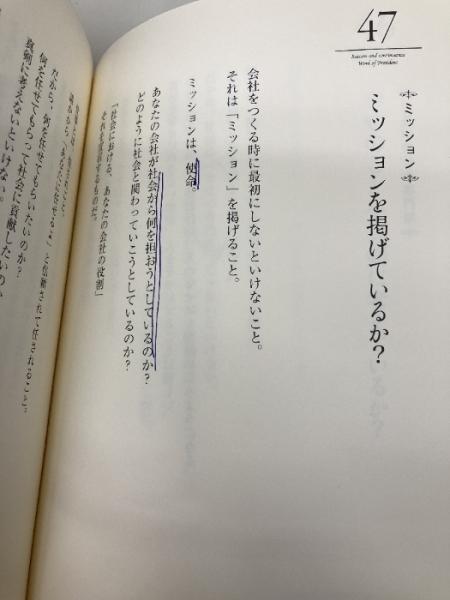 47
Reasons and continuance
Word of President
ミッション
ミッションを掲げているか?
会社をつくる時に最初にしないといけないこと。
それは「ミッション」を掲げること。
ミッションは、使命。
あなたの会社が社会から何を担おうとしているのか?
どのように社会と関わっていこうとしているのか?
「社会における、あなたの会社の役割」
それを
するものだ。
と信頼されて任されること。
だから、何を任せてもらいたいのか?
何を任せてもらって社会に貢献したいのか
真剣に考えないといけない。